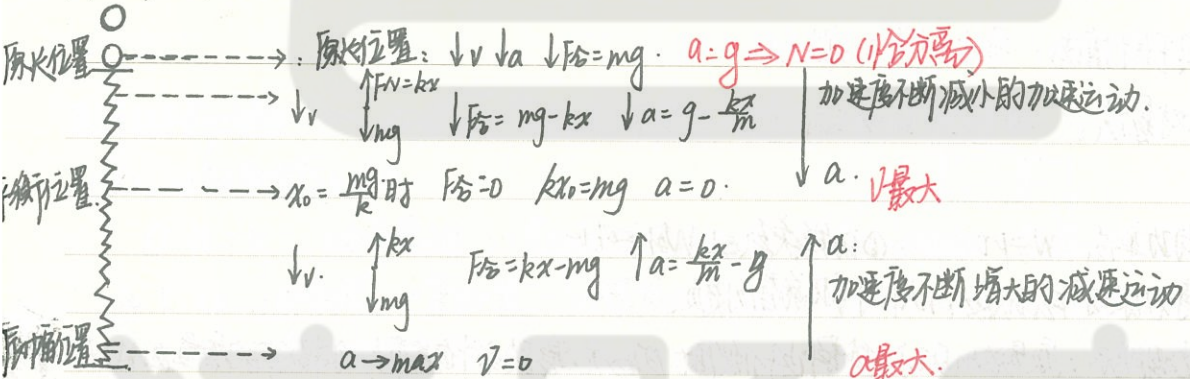 原长位置 : 原长位置: ↓v ↓a ↓F合=mg. a=g⇒N=0 (恰分离)
↓v ↑FN=kx ↓mg ↓F合=mg-kx ↓a=g-kx/m 加速度不断减小的加速运动.
平衡位置. x₀=mg/k时 F合=0 kx₀=mg a=0. ↓a. V最大
↓v. ↑kx ↓mg F合=kx-mg ↑a=kx/m-g ↑a:
加速度不断增大的减速运动
位置 a→max V=0 a最大.